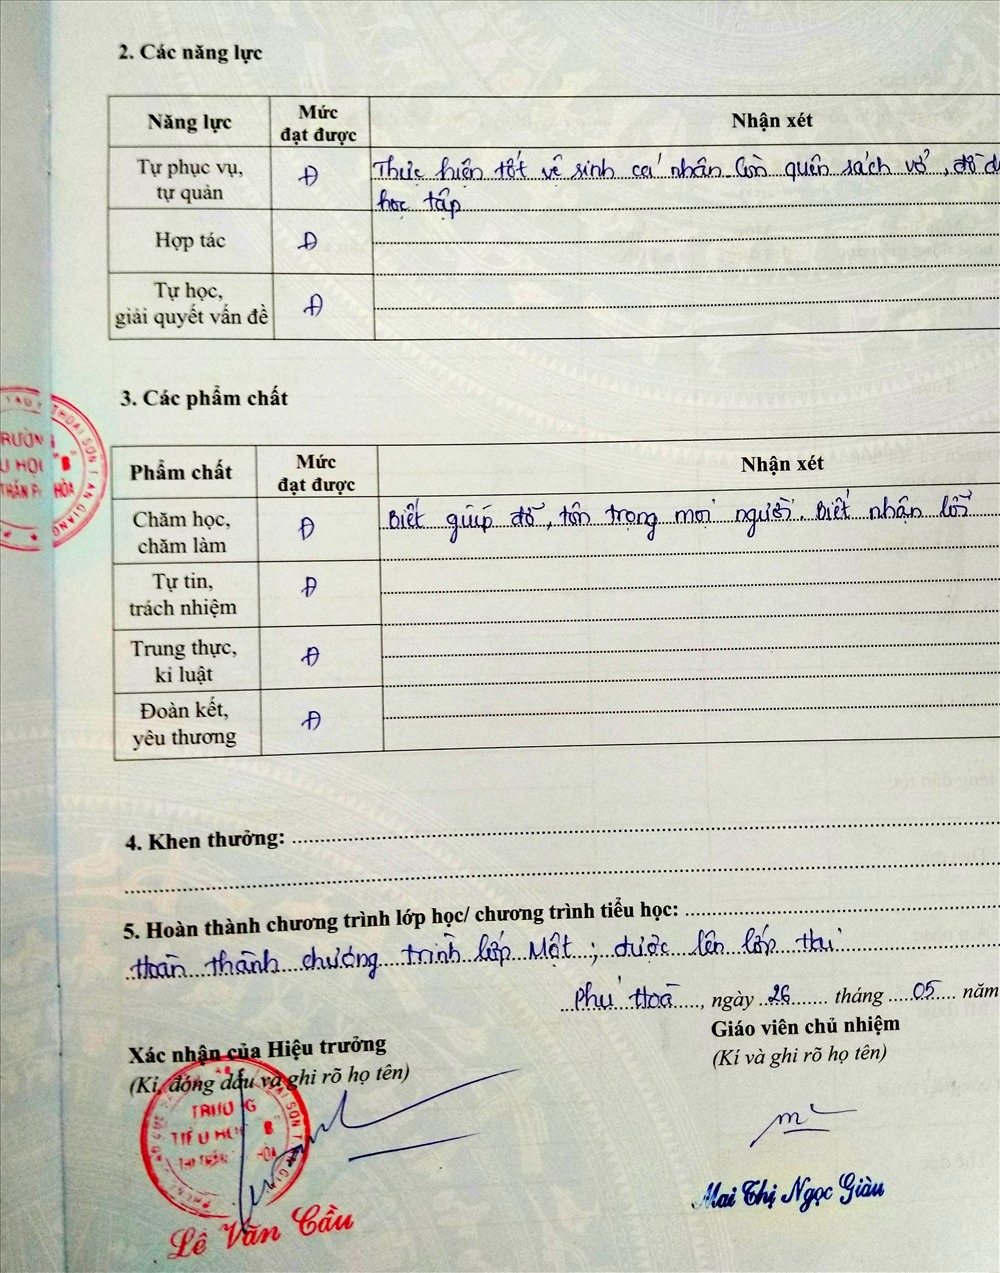 2. Các năng lực
Năng lực
Mức
đạt được
Nhận xét
Tự phục vụ,
tự quản
Đ
Thực hiện tốt vệ sinh cá nhân Còn quên sách vở, đồ d
học tập
Hợp tác
Đ
Tự học,
giải quyết vấn đề
Đ
3. Các phẩm chất
Phẩm chất
Mức
đạt được
Nhận xét
Chăm học,
chăm làm
Đ
Biết giúp đỡ, tôn trọng mọi người. Biết nhận lỗi
Tự tin,
trách nhiệm
Đ
Trung thực,
kỉ luật
Đ
Đoàn kết,
yêu thương
Đ
4. Khen thưởng:
5. Hoàn thành chương trình lớp học/ chương trình tiểu học:
Hoàn thành chương trình lớp Một; được lên lớp
Phú Hoà, ngày 26 tháng 05 năm
Xác nhận của Hiệu trưởng
(Kí, đóng dấu và ghi rõ họ tên)
Giáo viên chủ nhiệm
(Kí và ghi rõ họ tên)
TRƯỜNG
TIỂU HỌC "B"
THỊ TRẤN HÒA
Lê Văn Cầu
Mai Thị Ngọc Giàu